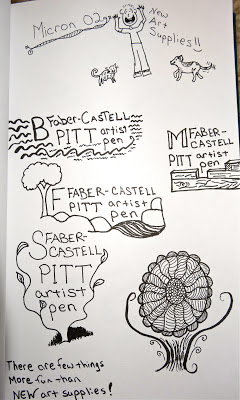 Micron 02
New
Art
Supplies!!
B Faber-Castell
PITT artist
pen
M Faber-
Castell
PITT artist
pen
F Faber-Castell
PITT artist
pen
S Faber-
Castell
PITT
artist
pen
There are few things
More fun than
NEW art supplies!